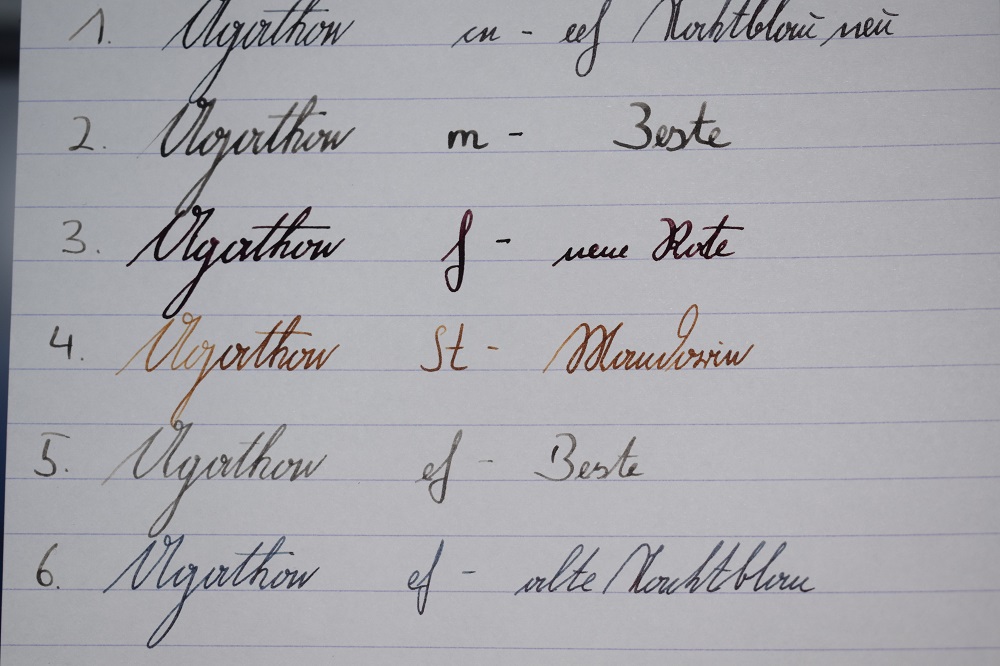 1. Agathon m - eef Nachtblau neu
2. Agathon m - Beste
3. Agathon f - neue Rote
4. Agathon St - Mandarin
5. Agathon ef - Beste
6. Agathon ef - alte Nachtblau